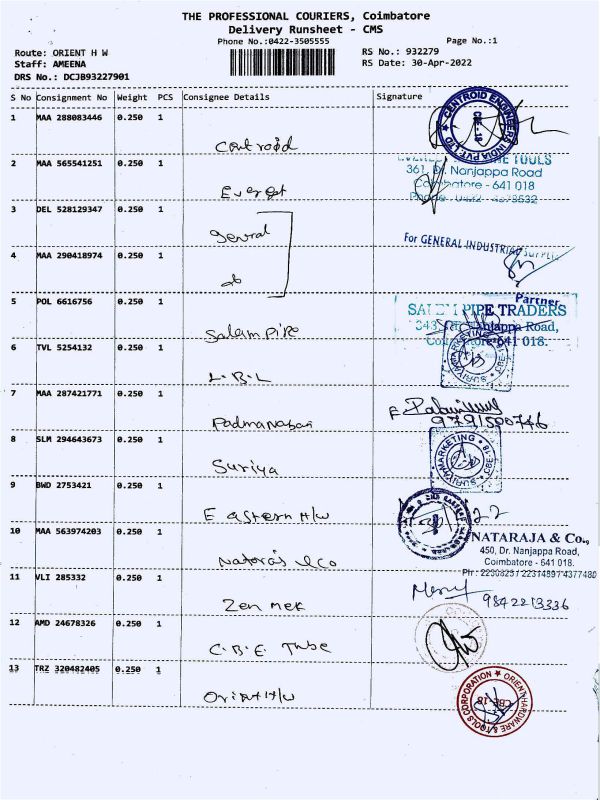 THE PROFESSIONAL COURIERS, Coimbatore
Delivery Runsheet - CMS
Phone No.:0422-3505555
Page No.:1
Route: ORIENT H W
RS No.: 932279
Staff: AMEENA
RS Date: 30-Apr-2022
DRS No.: DCJB93227901
S No Consignment No Weight PCS Consignee Details Signature
1 MAA 288083446 0.250 1
Centroid
CENTROID ENGINEERS INDIA PVT LTD
2 MAA 565541251 0.250 1
Everest
TOOLS
361, Dr. Nanjappa Road
Coimbatore - 641 018
3 DEL 528129347 0.250 1
General
For GENERAL INDUSTRIAL
4 MAA 290418974 0.250 1
do
Partner
5 POL 6616756 0.250 1
Salem pipe
SALEM PIPE TRADERS
343, Nanjappa Road,
Coimbatore 641 018.
6 TVL 5254132 0.250 1
L.B.L
7 MAA 287421771 0.250 1
Padmanaban
9791500746
8 SLM 294643673 0.250 1
Suriya
SURIYA MARKETING CBE-18
9 BWD 2753421 0.250 1
Eastern H/W
10 MAA 563974203 0.250 1
Nataraj & Co
NATARAJA & Co.,
450, Dr. Nanjappa Road,
Coimbatore - 641 018.
11 VLI 285332 0.250 1
Zen mek
9842213336
12 AMD 24678326 0.250 1
C.B.E. Tube
13 TRZ 320482405 0.250 1
Orient H/W
ORIENT HARDWARE & TOOLS CORPORATION
CBE-18